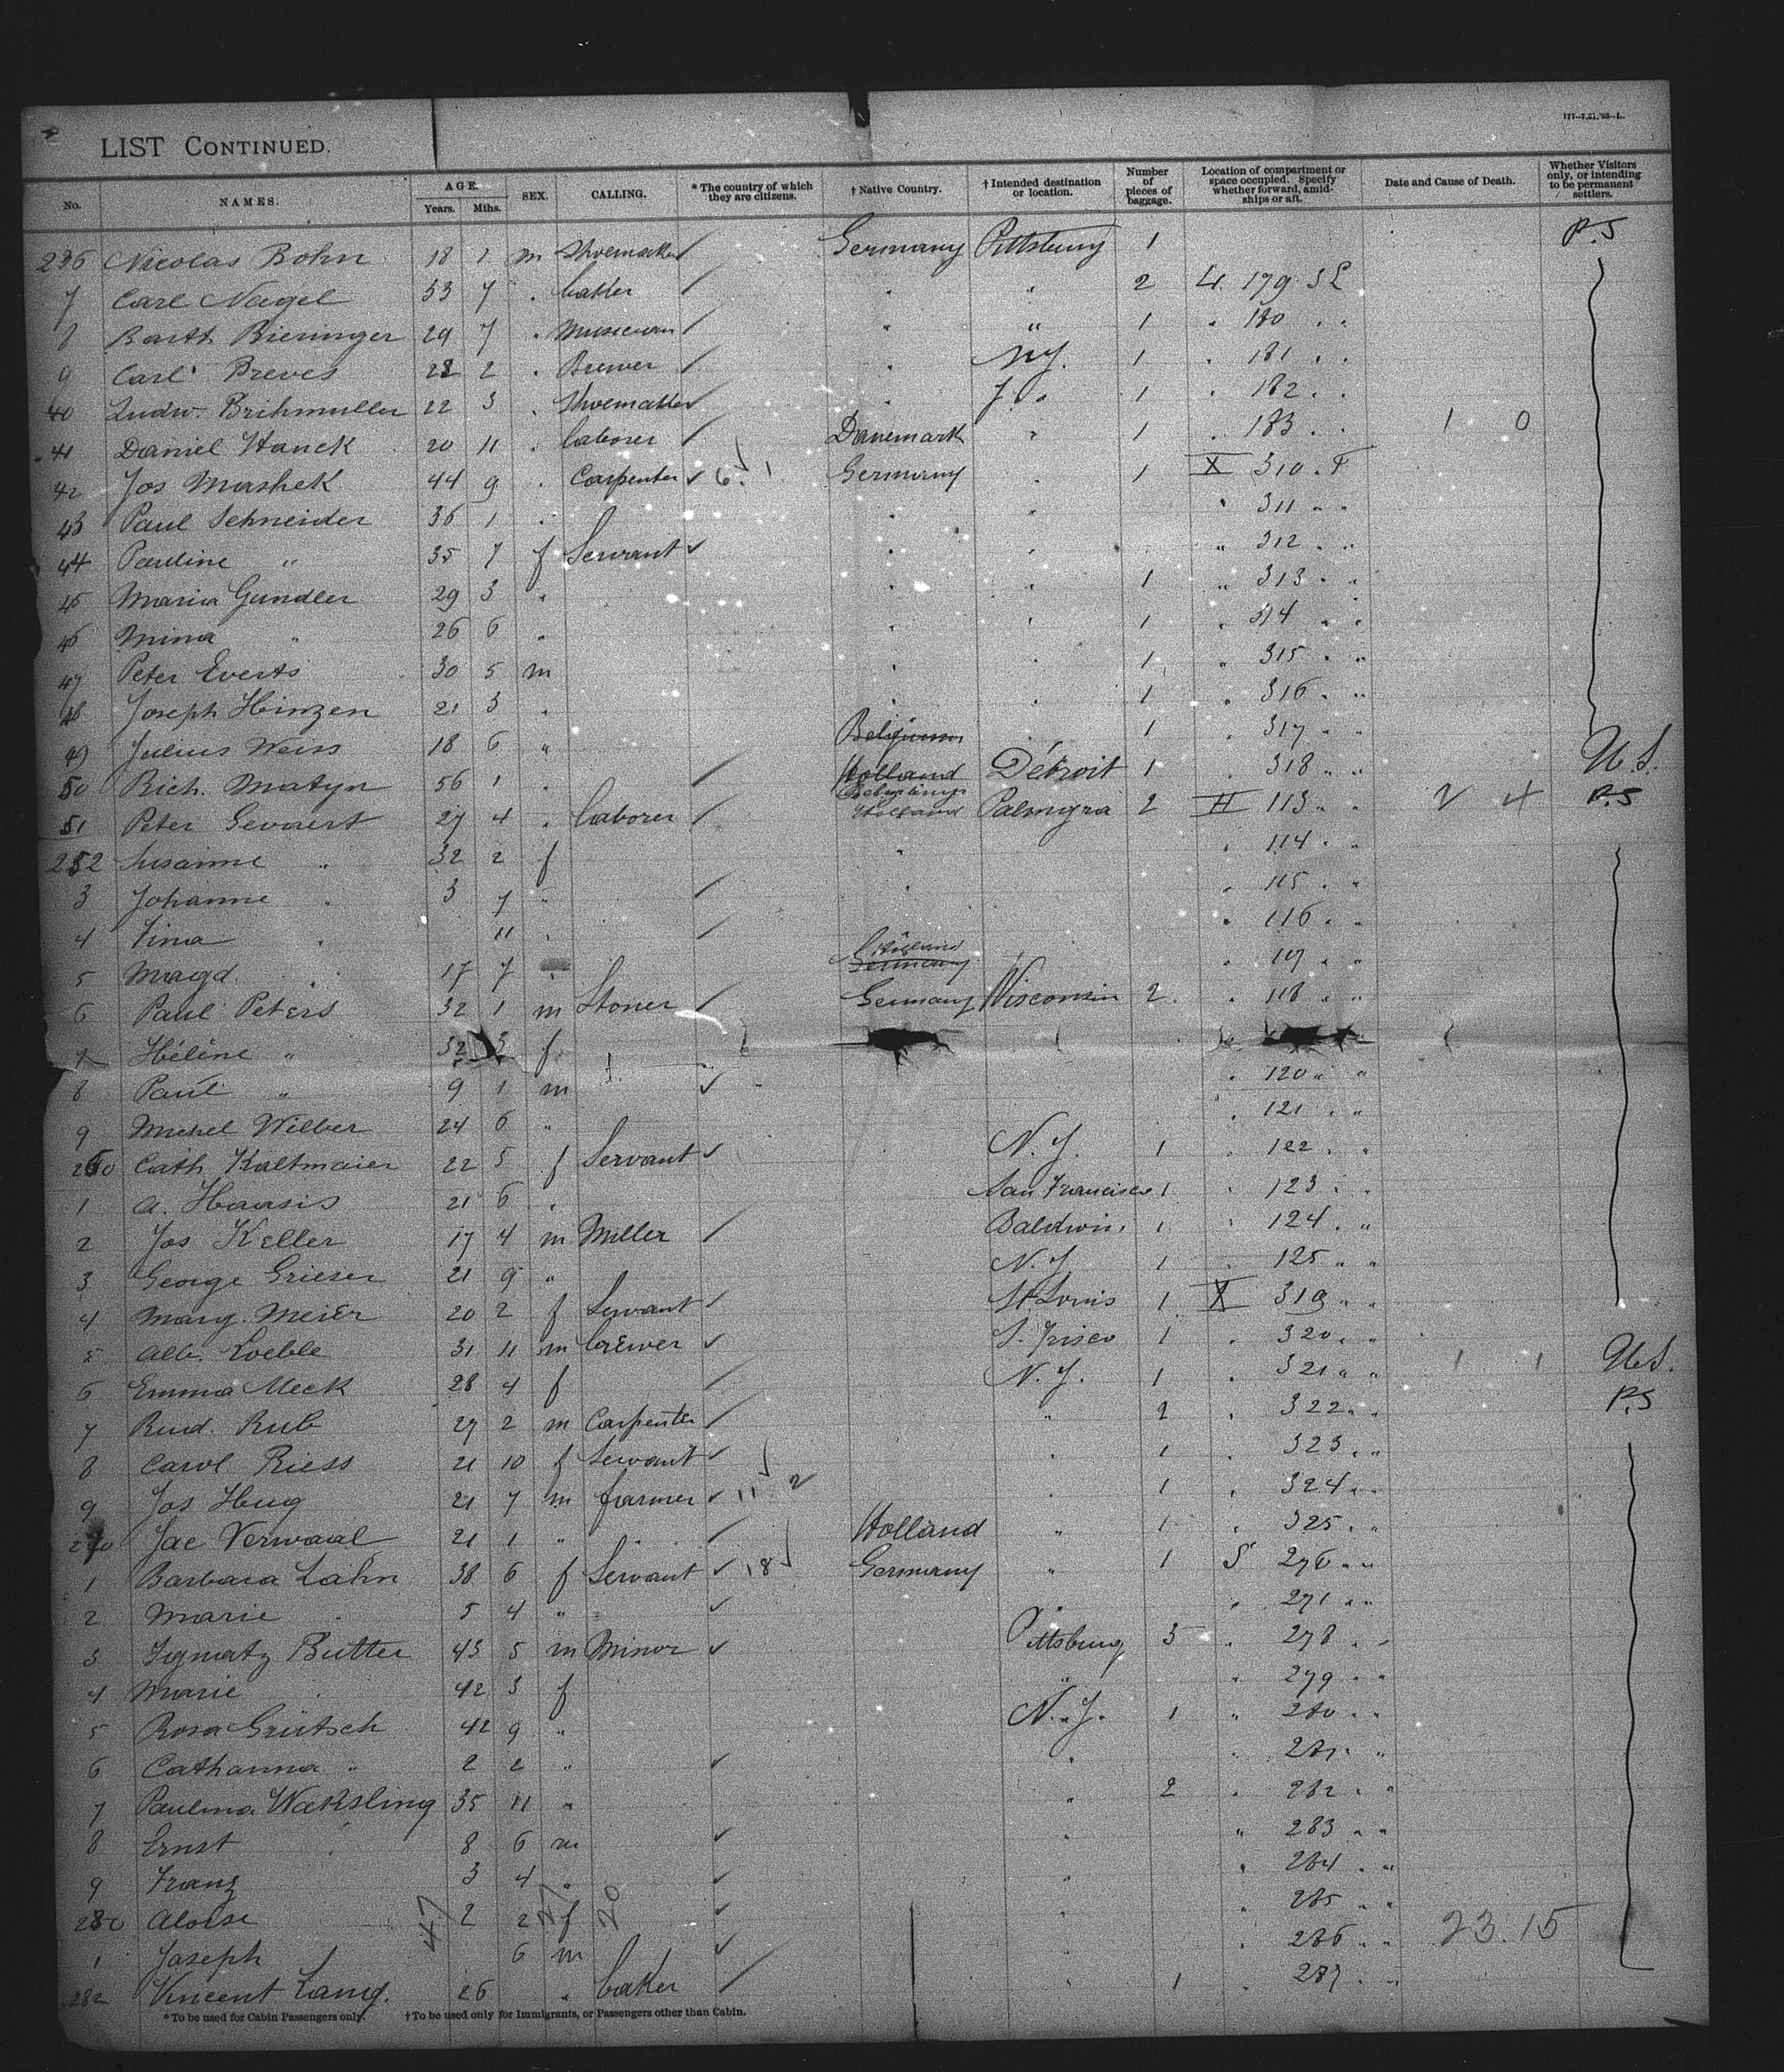 177—7,21,'93—L.
LIST CONTINUED.
No. NAMES. AGE. Years. Mths. SEX. CALLING. * The country of which they are citizens. † Native Country. † Intended destination or location. Number of pieces of baggage. Location of compartment or space occupied. Specify whether forward, amidships or aft. Date and Cause of Death. Whether Visitors only, or intending to be permanent settlers.
236 Nicolas Bohn 18 1 m Shoemaker Germany Pittsburg 1 P.S
7 Carl Nagel 33 7 . baker . " 2 179
8 Barth Bieringer 29 7 . musician . " 1 . 180 . .
9 Carl Preves 28 2 . Brewer . N.Y. 1 . 181 . .
40 Ludw. Brihmuller 22 3 . Shoemaker . 1 . 182 . .
41 Daniel Hanck 20 11 . laborer Danemark " 1 . 183 . . 1 0
42 Jos Mashek 44 9 . Carpenter 6 1 Germany . 1 X 310 . F
43 Paul Schneider 36 1 . . . 311 " "
44 Pauline " 35 7 f Servant . . " 312 . "
45 Maria Gundler 29 3 . . . 1 " 313 . "
46 Mina " 26 6 . . . 1 . 314 " .
47 Peter Everts 30 5 m . . 1 " 315 . "
48 Joseph Hinzen 21 3 . . . 1 . 316 . "
49 Julius Weiss 18 6 " Belgium . 1 . 317 " "
50 Rich. Matyn 56 1 . Holland Detroit 1 . 318 " " U.S.
51 Peter Gevaert 27 4 . laborer Holland Palmyra 2 II 113 " " 2 4 P.S
252 Susanne " 32 2 f . . 114 . "
3 Johanne . 3 7 " . . 115 . "
4 Tina . 11 . . 116 . "
5 Magd. . 17 7 . Holland Germany . 117 . "
6 Paul Peters 32 1 m Stoner Germany Wisconsin 2 . 118 " "
7 Hélène " 32 3 f
8 Paul " 9 1 m . 120 " "
9 Michel Wilber 24 6 " . 121 . "
260 Cath Kaltmaier 22 5 f Servant N.Y. 1 . 122 . "
1 A. Haasis 21 6 . San Francisco 1 . 123 . .
2 Jos Keller 17 4 m Miller Baldwin 1 . 124 . "
3 George Grieser 21 9 " N.Y 1 . 125 " "
4 Mary Meier 20 2 f Servant St Louis 1 X 319 " "
5 Alb. Loeble 31 11 m brewer S. Frisco 1 . 320 . "
6 Emma Meck 28 4 f N.Y. 1 . 321 " " 1 1 U.S.
7 Rud. Rub 27 2 m Carpenter " 2 . 322 " " P.S
8 Carol Riess 21 10 f Servant . 1 . 323 . "
9 Jos Hug 21 7 m farmer 11 2 . 1 . 324 . "
270 Jac Verwaal 21 1 " . . Holland " 1 . 325 . "
1 Barbara Lahn 38 6 f Servant 18 Germany " 1 S 276 " "
2 Marie . 5 4 " " . 271 " "
3 Ignatz Butter 43 5 m Minor Pittsburg 3 . 278 . "
4 Marie . 42 3 f " . 279 . "
5 Rosa Grütsch 42 9 " N.Y. 1 " 280 . "
6 Catharina " 2 2 " . . 281 . "
7 Paulina Waksling 35 11 " " 2 . 282 . "
8 Ernst . 8 6 m . " 283 . "
9 Franz 3 4 . . . 284 . "
280 Aloise 2 2 f . . 285 . "
1 Joseph 6 m . 286 . "
282 Vincent Lang. 26 " baker . 1 . 287 . .
47 27 20 23.15
* To be used for Cabin Passengers only. † To be used only for Immigrants, or Passengers other than Cabin.